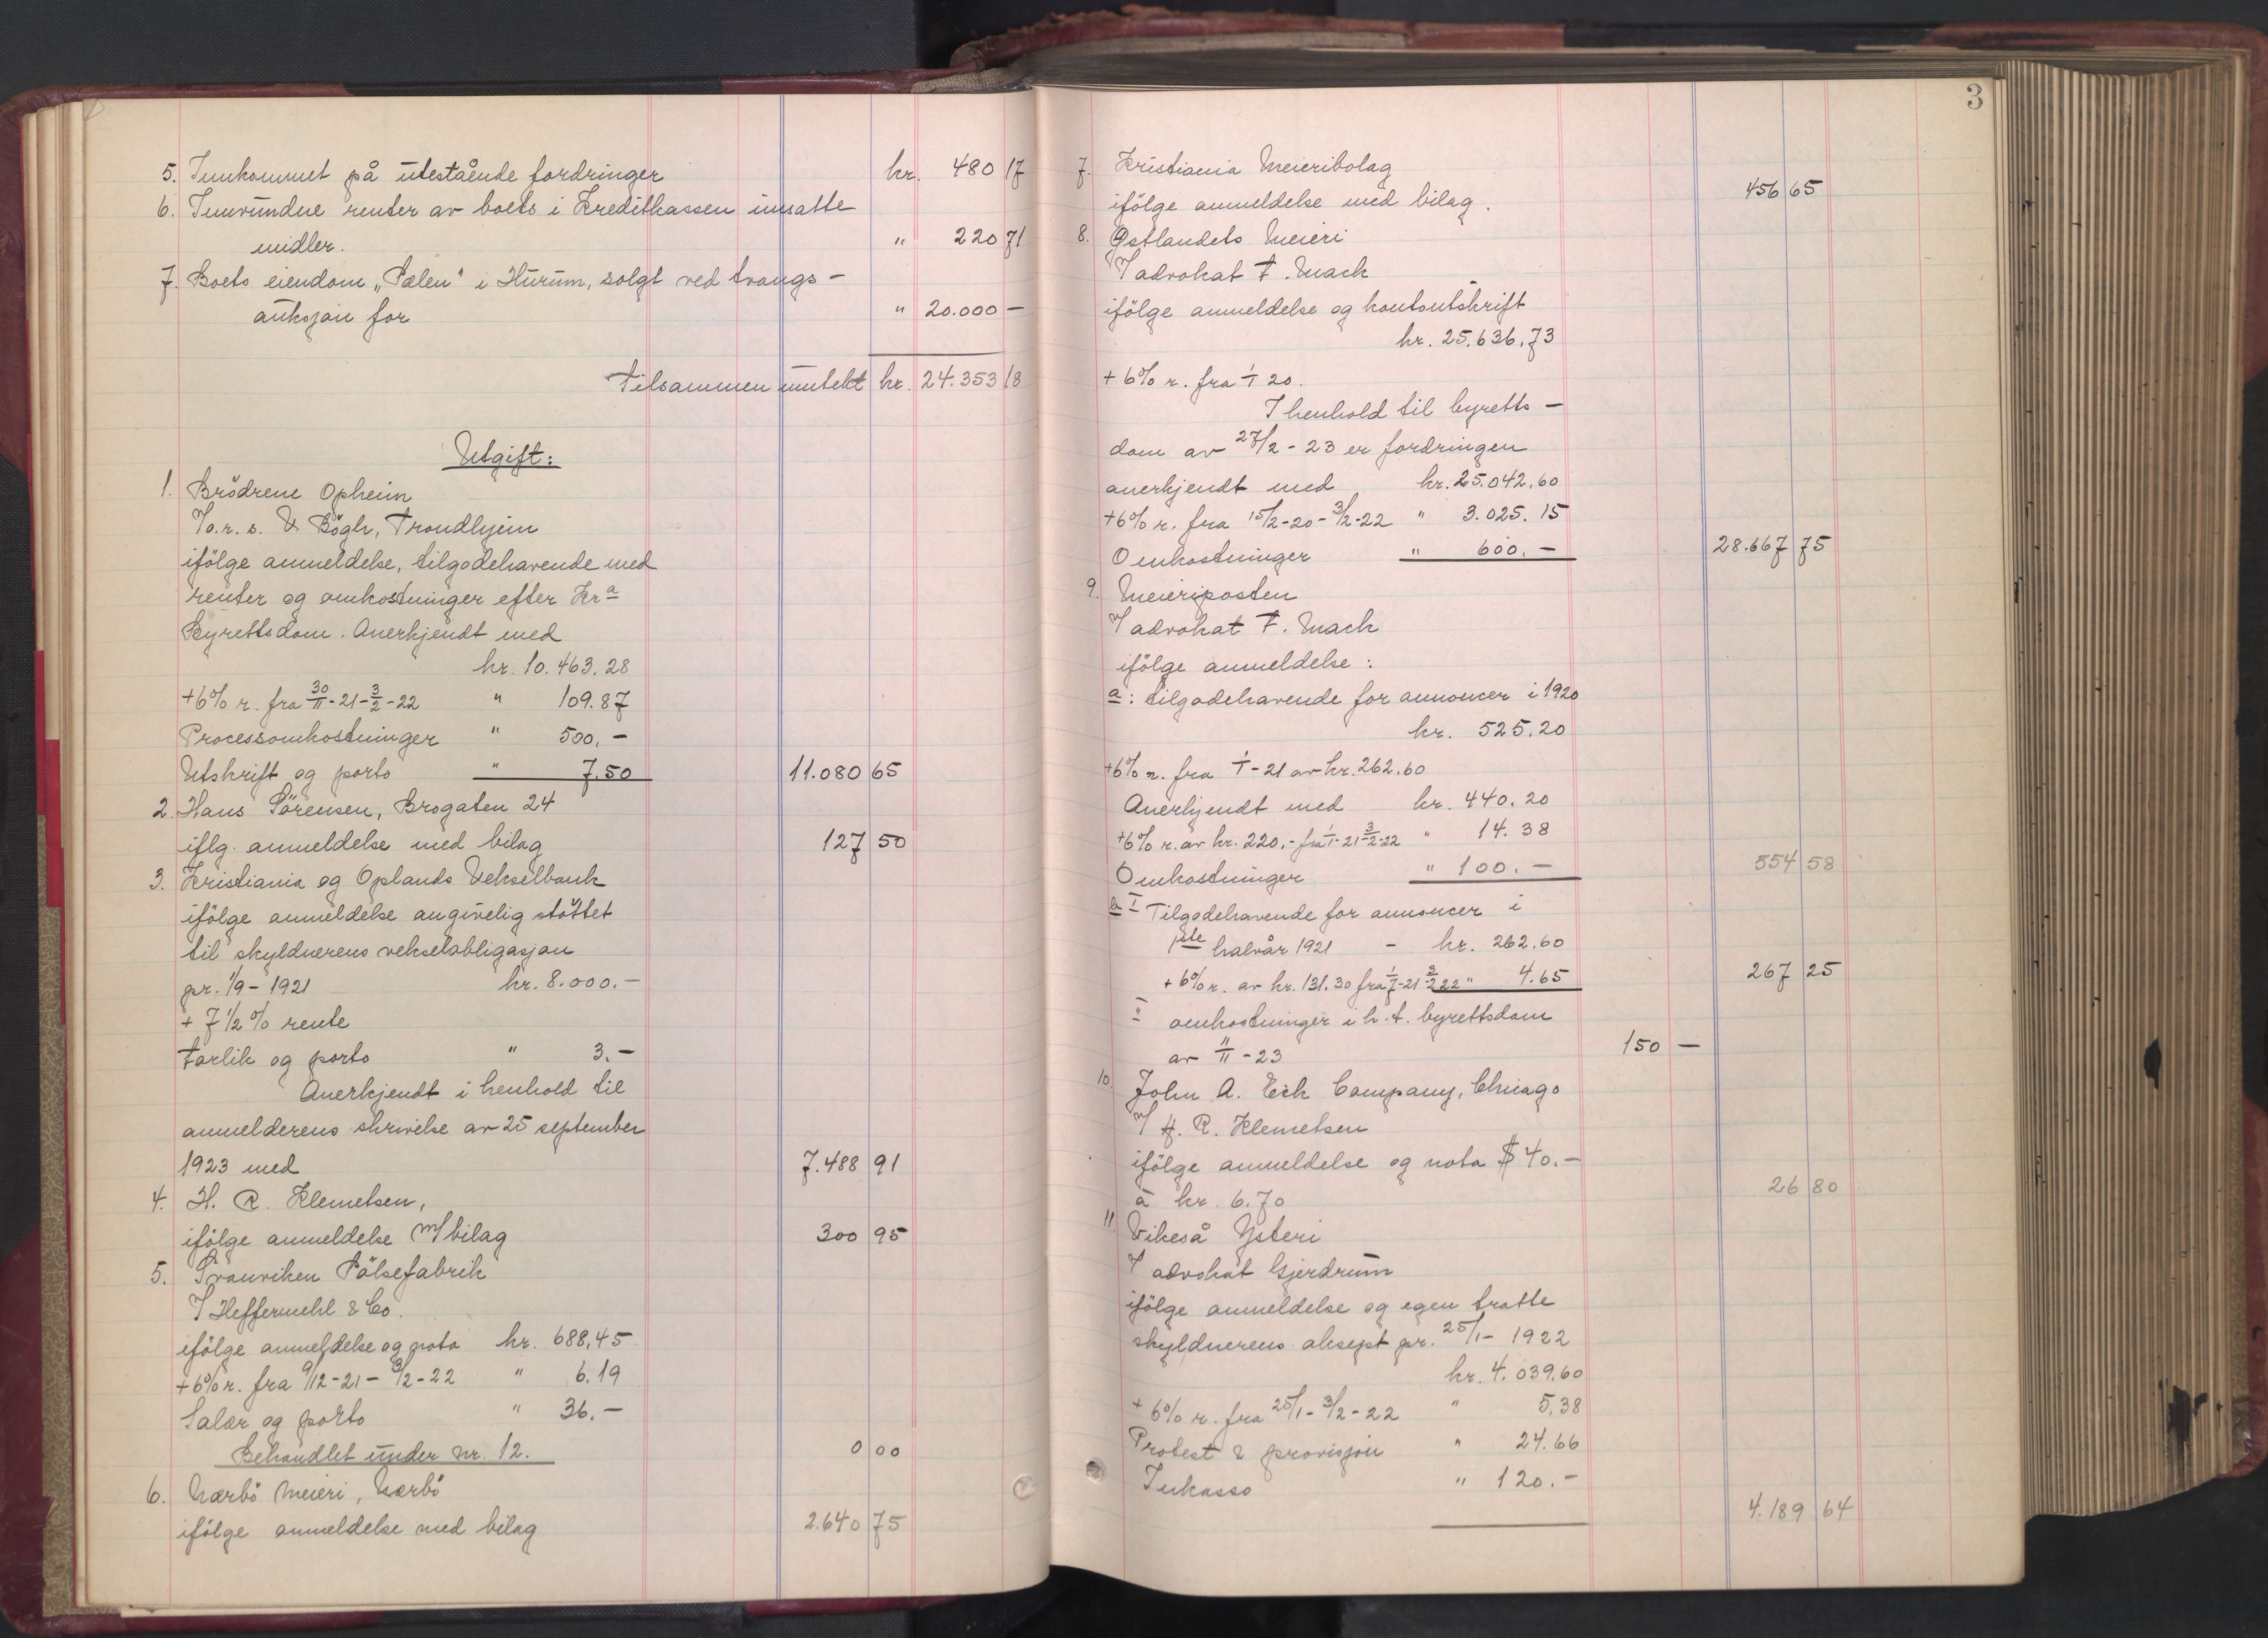 5. Innkommet på utestående fordringer kr. 480 17
6. Innvundne renter av boets i Kreditkassen innsatte
midler. " 220 71
7. Boets eiendom „Pælen" i Hurum, solgt ved tvangs-
auksjon for " 20.000 —
Tilsammen inntekt kr. 24.353 18
Utgift:
1. Brödrene Opheim
V o.r.s. V Bögh, Trondhjem
ifölge anmeldelse, tilgodehavende med
renter og omkostninger efter Kra
Byrettsdom. Anerkjendt med
kr. 10.463.28
+ 6% r. fra 30/11-21-3/2-22 " 109.87
Processomkostninger " 500.-
Utskrift og porto " 7.50 11.080 65
2. Hans Sörensen, Brogaten 24
iflg. anmeldelse med bilag 127 50
3. Kristiania og Oplands Vekselbank
ifölge anmeldelse angivelig stöttet
til skyldnerens vekselobligasjon
pr. 1/9 - 1921 kr. 8.000.-
+ 7 1/2 % rente
Forlik og porto " 3.-
Anerkjendt i henhold til
anmelderens skrivelse av 25 september
1923 med 7.488 91
4. H. R. Klemetsen,
ifölge anmeldelse m/bilag 300 95
5. Svanviken Pölsefabrik
V Heffermehl & Co.
ifölge anmeldelse og nota kr. 688,45
+ 6% r. fra 9/12-21-3/2-22 " 6.19
Salær og porto " 36.-
Behandlet under nr. 12. 0 00
6. Nærbö Meieri, Nærbö
ifölge anmeldelse med bilag 2.640 75
3
7. Kristiania Meieribolag
ifölge anmeldelse med bilag. 456 65
8. Østlandets Meieri
V advokat F. Mack
ifölge anmeldelse og kontoutskrift
kr. 25.636,73
+ 6% r. fra 1/1 20.
I henhold til byretts-
dom av 27/2-23 er fordringen
anerkjendt med kr. 25.042,60
+ 6% r. fra 15/2-20-3/2-22 " 3.025.15
Omkostninger " 600.- 28.667 75
9. Meieriposten
V advokat F. Mack
ifölge anmeldelse:
a: tilgodehavende for annoncer i 1920
kr. 525.20
+6% r. fra 1/1-21 av kr. 262.60
Anerkjendt med kr. 440.20
+6% r. av kr. 220.- fra 1/1-21-3/2-22 " 14.38
Omkostninger " 100.- 554 58
b I Tilgodehavende for annoncer i
1ste halvår 1921 - kr. 262.60
+ 6% r. av kr. 131.30 fra 1/7-21 3/2 22 " 4.65 267 25
II omkostninger i h.t. byrettsdom
av 11/11-23 150 —
10. John A. Eck Company, Chicago
V H. R. Klemetsen
ifölge anmeldelse og nota $40.-
à kr. 6.70 26 80
11. Vikeså Ysteri
V advokat Gjerdrum
ifölge anmeldelse og egen tratte
skyldnerens aksept pr. 25/1 - 1922
kr. 4.039.60
+ 6% r. fra 25/1-3/2-22 " 5,38
Protest & provisjon " 24.66
Inkasso " 120.-
4.189 64